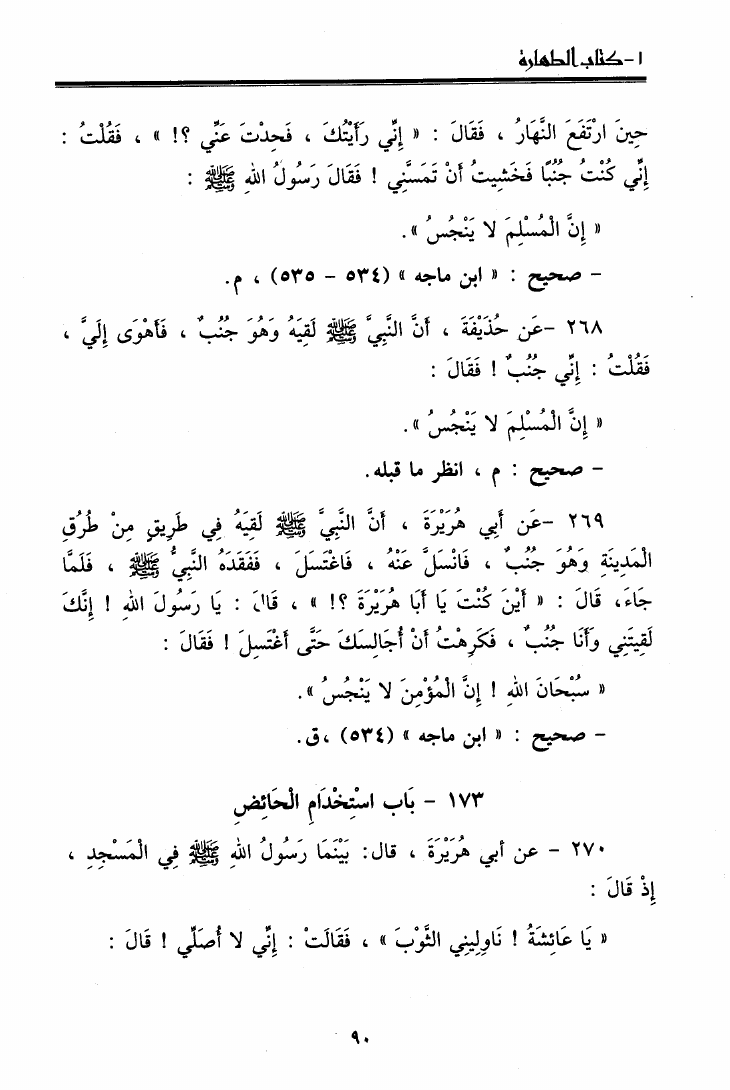 ١-كتاب الطهارة
حِينَ ارْتَفَعَ النَّهَارُ ، فَقَالَ : « إِنِّي رَأَيْتُكَ ، فَحِدْتَ عَنِّي ؟! » ، فَقُلْتُ :
إِنِّي كُنْتُ جُنُبًا فَخَشِيتُ أَنْ تَمَسَّنِي ! فَقَالَ رَسُولُ اللهِ ﷺ :
« إِنَّ الْمُسْلِمَ لا يَنْجُسُ ».
– صحيح : « ابن ماجه » (٥٣٤ – ٥٣٥) ، م.
٢٦٨ –عَن حُذَيْفَةَ ، أَنَّ النَّبِيَّ ﷺ لَقِيَهُ وَهُوَ جُنُبٌ ، فَأَهْوَى إِلَيَّ ،
فَقُلْتُ : إِنِّي جُنُبٌ ! فَقَالَ :
« إِنَّ الْمُسْلِمَ لا يَنْجُسُ ».
– صحيح : م ، انظر ما قبله.
٢٦٩ –عَن أَبِي هُرَيْرَةَ ، أَنَّ النَّبِيَّ ﷺ لَقِيَهُ فِي طَرِيقٍ مِنْ طُرُقِ
الْمَدِينَةِ وَهُوَ جُنُبٌ ، فَانْسَلَّ عَنْهُ ، فَاغْتَسَلَ ، فَفَقَدَهُ النَّبِيُّ ﷺ ، فَلَمَّا
جَاءَ، قَالَ : « أَيْنَ كُنْتَ يَا أَبَا هُرَيْرَةَ ؟! » ، قَالَ : يَا رَسُولَ اللهِ ! إِنَّكَ
لَقِيتَنِي وَأَنَا جُنُبٌ ، فَكَرِهْتُ أَنْ أُجَالِسَكَ حَتَّى أَغْتَسِلَ ! فَقَالَ :
« سُبْحَانَ اللهِ ! إِنَّ الْمُؤْمِنَ لا يَنْجُسُ ».
– صحيح : « ابن ماجه » (٥٣٤) ،ق.
١٧٣ – بَاب اسْتِخْدَامِ الْحَائِضِ
٢٧٠ – عن أبي هُرَيْرَةَ ، قال: بَيْنَمَا رَسُولُ اللهِ ﷺ فِي الْمَسْجِدِ ،
إِذْ قَالَ :
« يَا عَائِشَةُ ! نَاوِلِينِي الثَّوْبَ » ، فَقَالَتْ : إِنِّي لا أُصَلِّي ! قَالَ :
٩٠